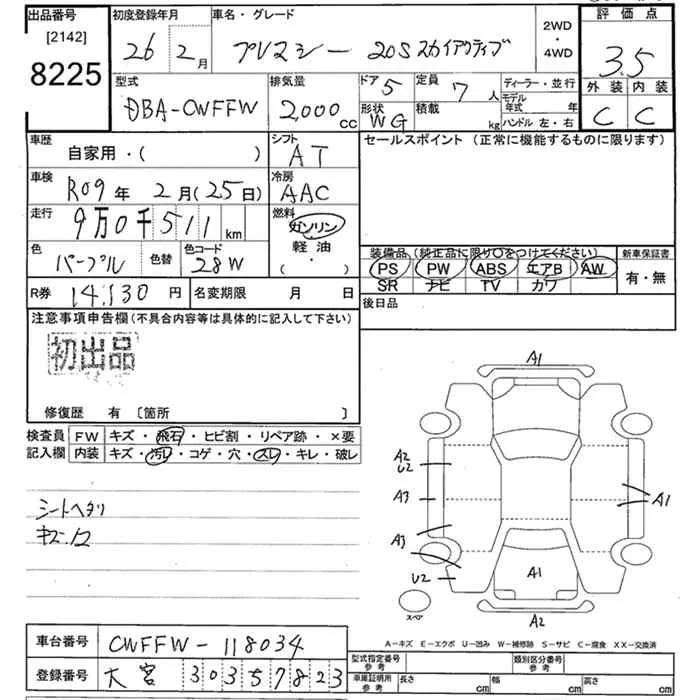 出品番号 初度登録年月 車名・グレード 2WD・4WD 評価点
[2142] 8225 26年 2月 プレマシー 20S スカイアクティブ 3.5
型式 排気量 ドア 5 定員 7人 ディーラー・並行 外装 内装
DBA-CWFFW 2,000cc 形状 WG 積載 kg モデル年式 年 ハンドル 左・右 C C
車歴 自家用・( ) シフト AT セールスポイント (正常に機能するものに限ります)
車検 R09年 2月(25日) 冷房 AAC
走行 9万0千511km 燃料 ガソリン 軽油・( )
色 パープル 色替 色コード 28W 装備品 (純正品に限り○をつけてください) 新車保証書
PS PW ABS エアB AW 有・無
SR ナビ TV カワ
R券 14,130円 名変期限 月 日 後日品
注意事項申告欄(不具合内容等は具体的に記入して下さい)
初出品
修復歴 有 [箇所 ]
検査員記入欄 FW キズ・飛石・ヒビ割・リペア跡・×要
内装 キズ・汚レ・コゲ・穴・スレ・キレ・破レ
シートヘタリ
キズ.12
A1
A2
U2
A3
A1
A3
U2
A1
スペア
A2
A-キズ E-エクボ U-凹み W-補修跡 S-サビ C-腐食 XX-交換済
車台番号 CWFFW-118034 型式指定番号 参考 類別区分番号 参考
登録番号 大宮 303 57823 車庫証明用 参考 長さ cm 幅 cm 高さ cm